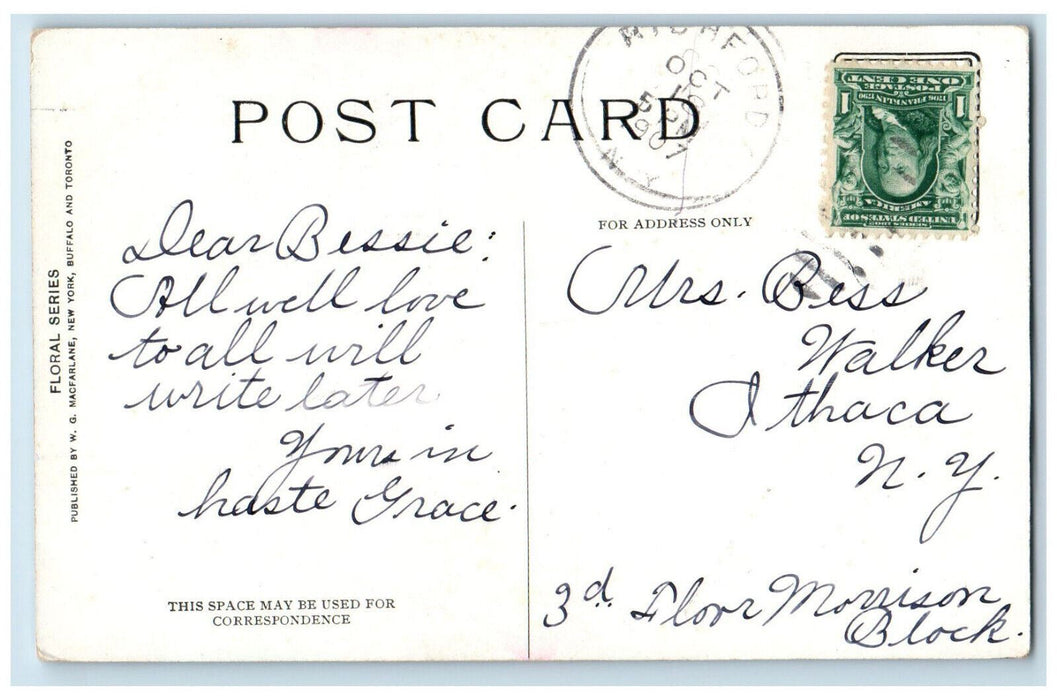 POST CARD
RICHFORD
OCT
5 PM
1907
N.Y.
POSTAGE
ONE CENT
1 1
1706 FRANKLIN 1790
UNITED STATES OF
AMERICA
SERIES 1902
FLORAL SERIES
PUBLISHED BY W. G. MACFARLANE, NEW YORK, BUFFALO AND TORONTO
Dear Bessie:
All well love
to all will
write later
Yours in
haste Grace.
THIS SPACE MAY BE USED FOR
CORRESPONDENCE
FOR ADDRESS ONLY
Mrs. Bess
Walker
Ithaca
N. Y.
3d. Floor Morrison
Block.